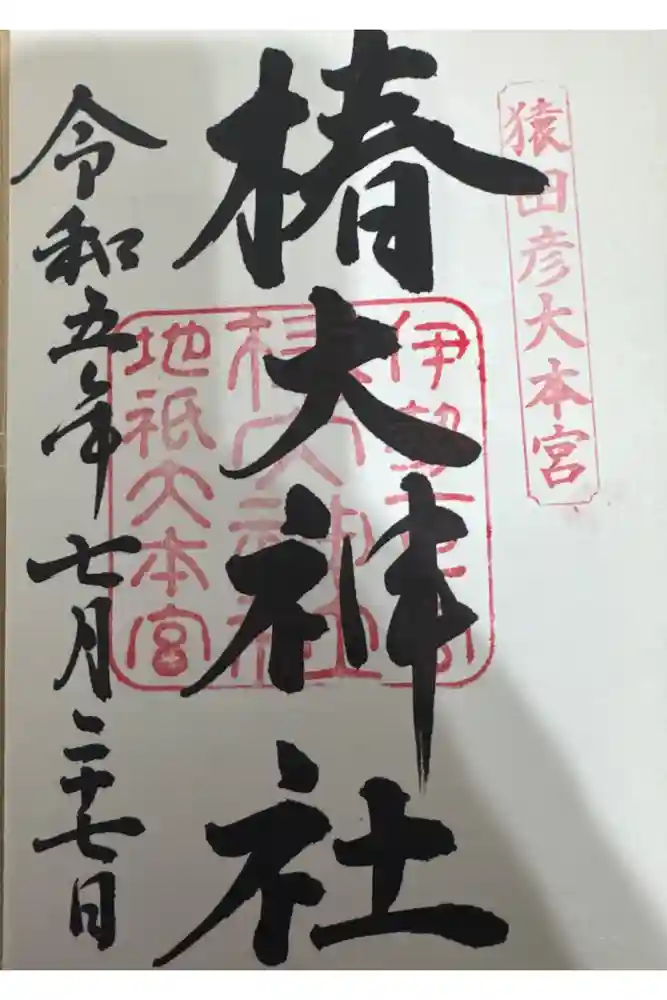 猿田彦大本宮
椿大神社
伊勢一之宮
椿大神社
地祇大本宮
令和五年七月二十七日